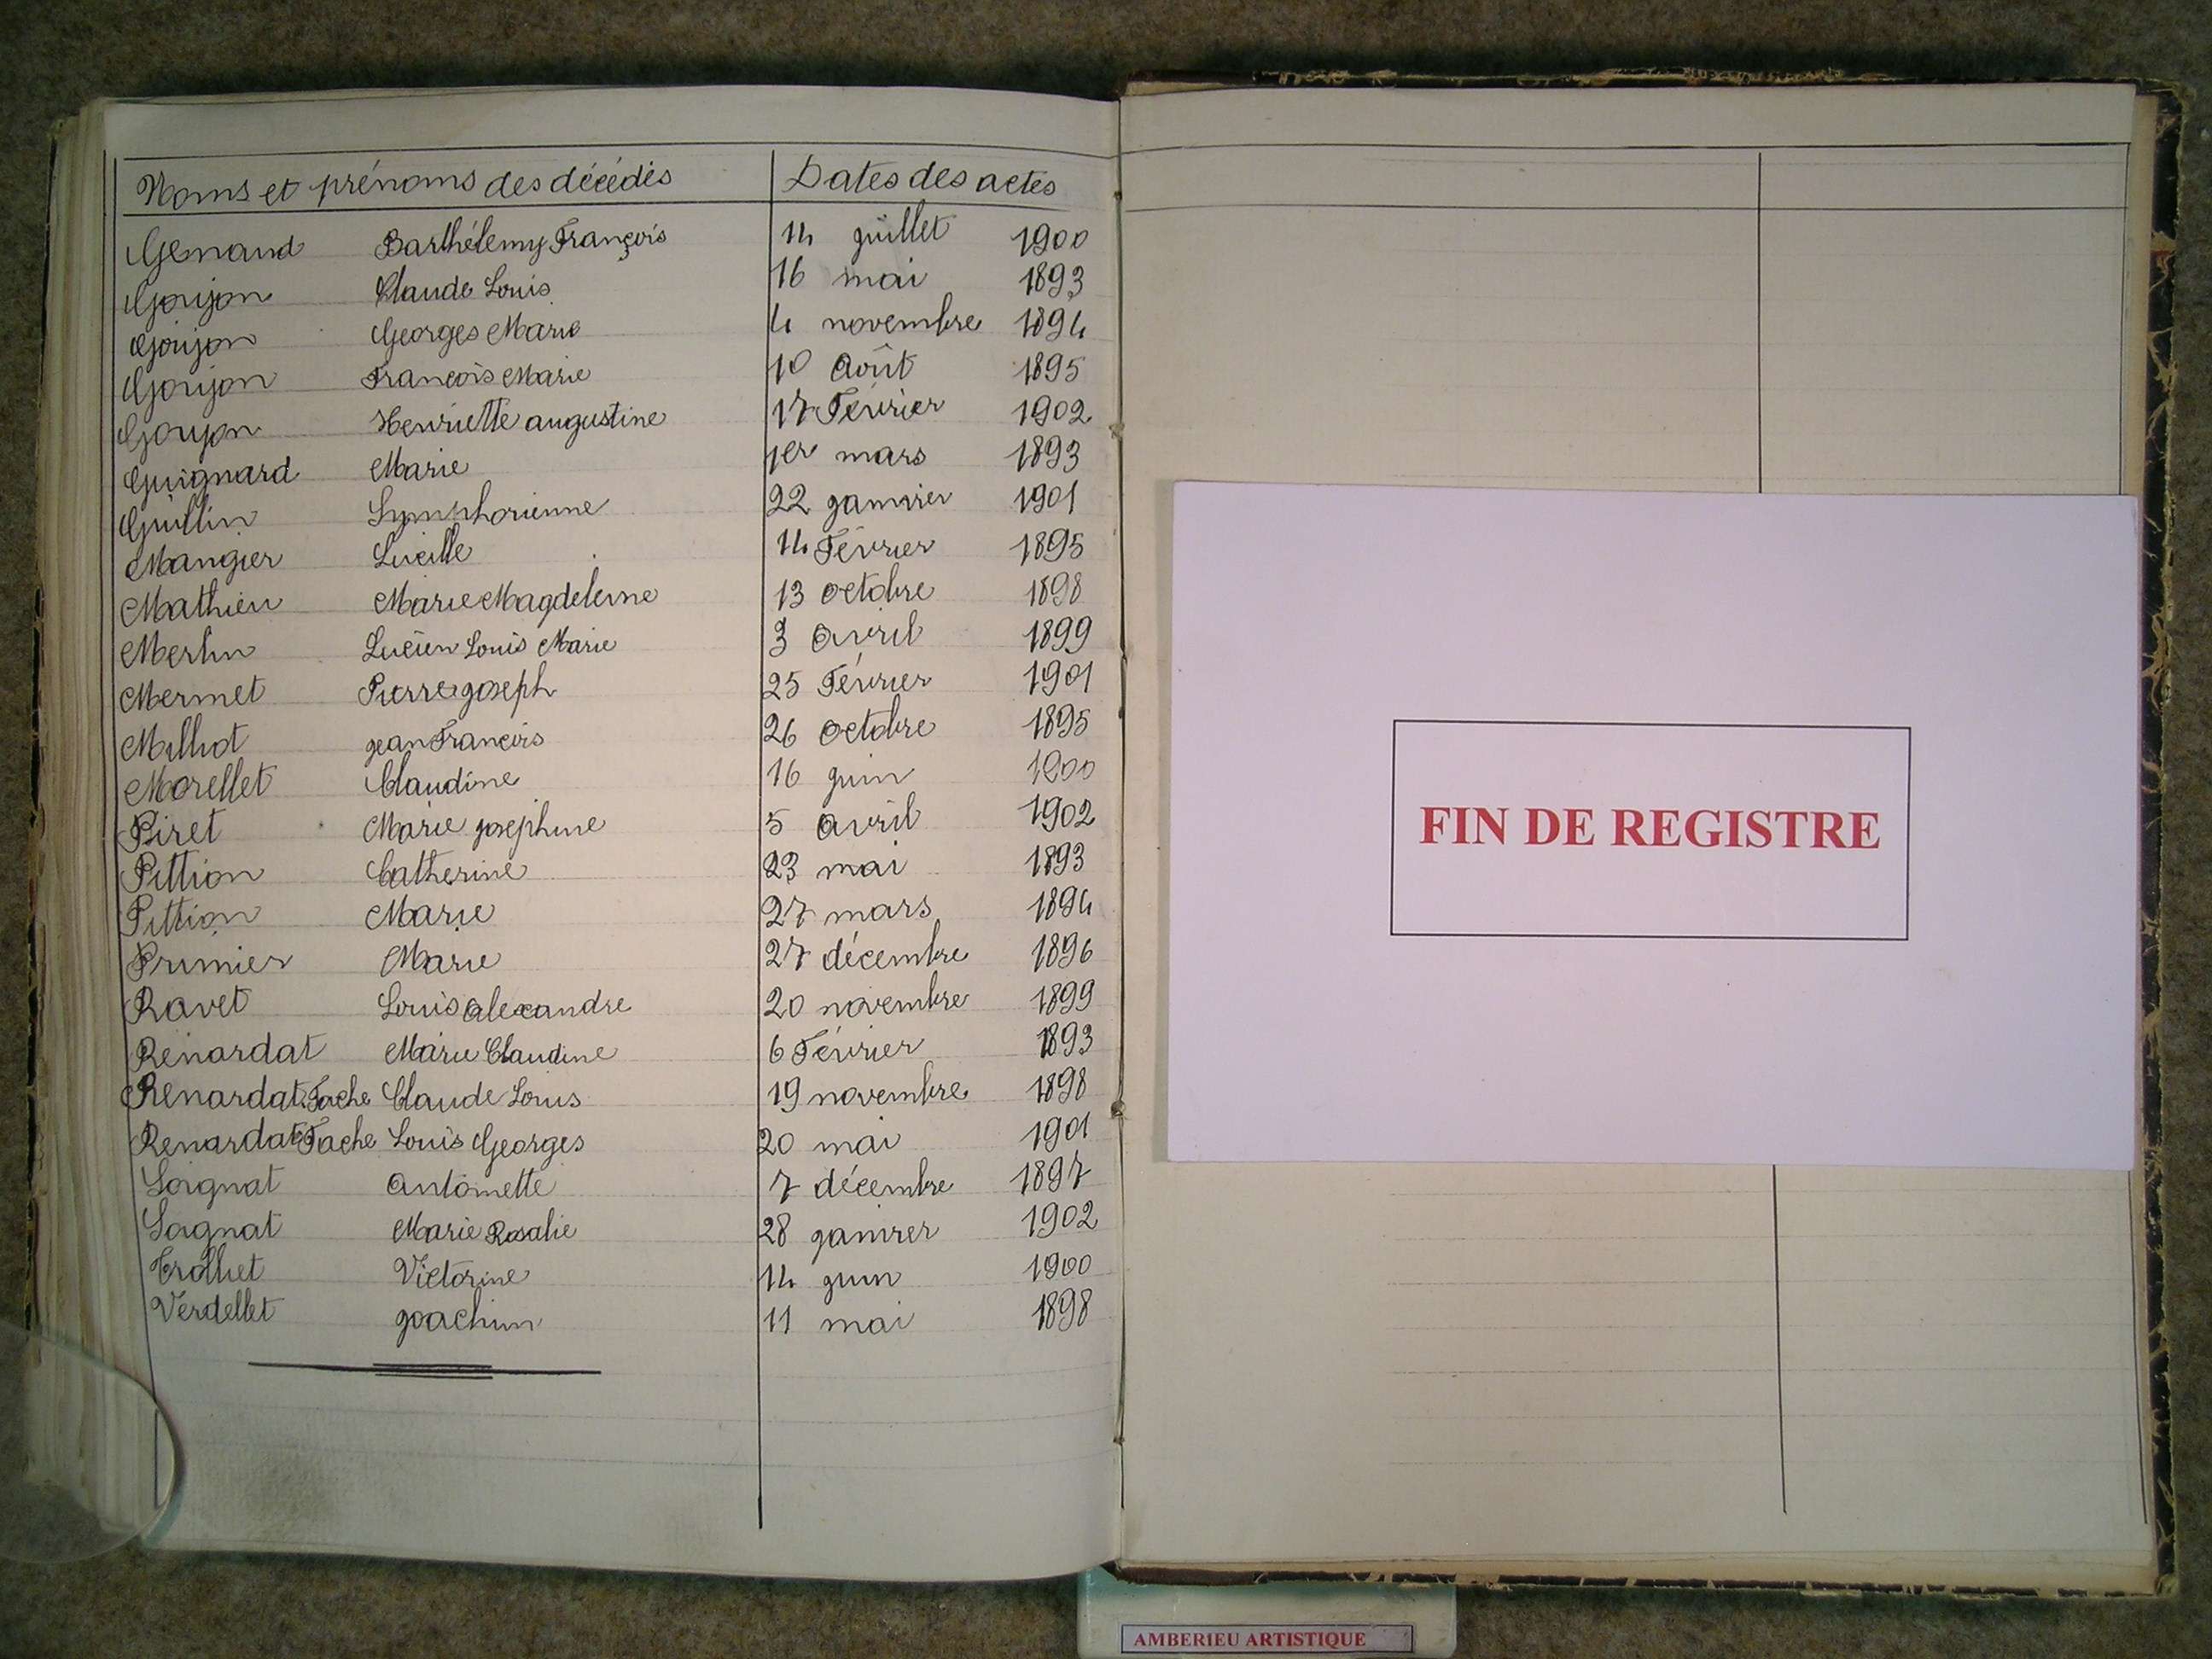 Noms et prénoms des décédés Dates des actes
Genaud Barthélemy François 14 juillet 1900
Goujon Claude Louis 16 mai 1893
Goujon Georges Marie 4 novembre 1894
Goujon François Marie 10 Août 1895
Goujon Henriette augustine 17 Février 1902
Guignard Marie 1er mars 1893
Guillin Symphorienne 22 janvier 1901
Mangier Lucille 14 Février 1895
Mathieu Marie Magdeleine 13 octobre 1898
Merlin Lucien Louis Marie 3 Avril 1899
Mermet Pierre joseph 25 Février 1901
Milliot jean François 26 octobre 1895
Morellet Claudine 16 juin 1900
Piret Marie josephine 5 Avril 1902
Pittion Catherine 23 mai 1893
Pittion Marie 27 mars 1894
Prumier Marie 27 décembre 1896
Ravet Louis Alexandre 20 novembre 1899
Renardat Marie Claudine 6 Février 1893
Renardat Fache Claude Louis 19 novembre 1898
Renardat Fache Louis Georges 20 mai 1901
Soignat Antoinette 7 décembre 1897
Soignat Marie Rosalie 28 janvier 1902
Trolliet Victorine 14 juin 1900
Verdellet joachim 11 mai 1898
FIN DE REGISTRE
AMBERIEU ARTISTIQUE